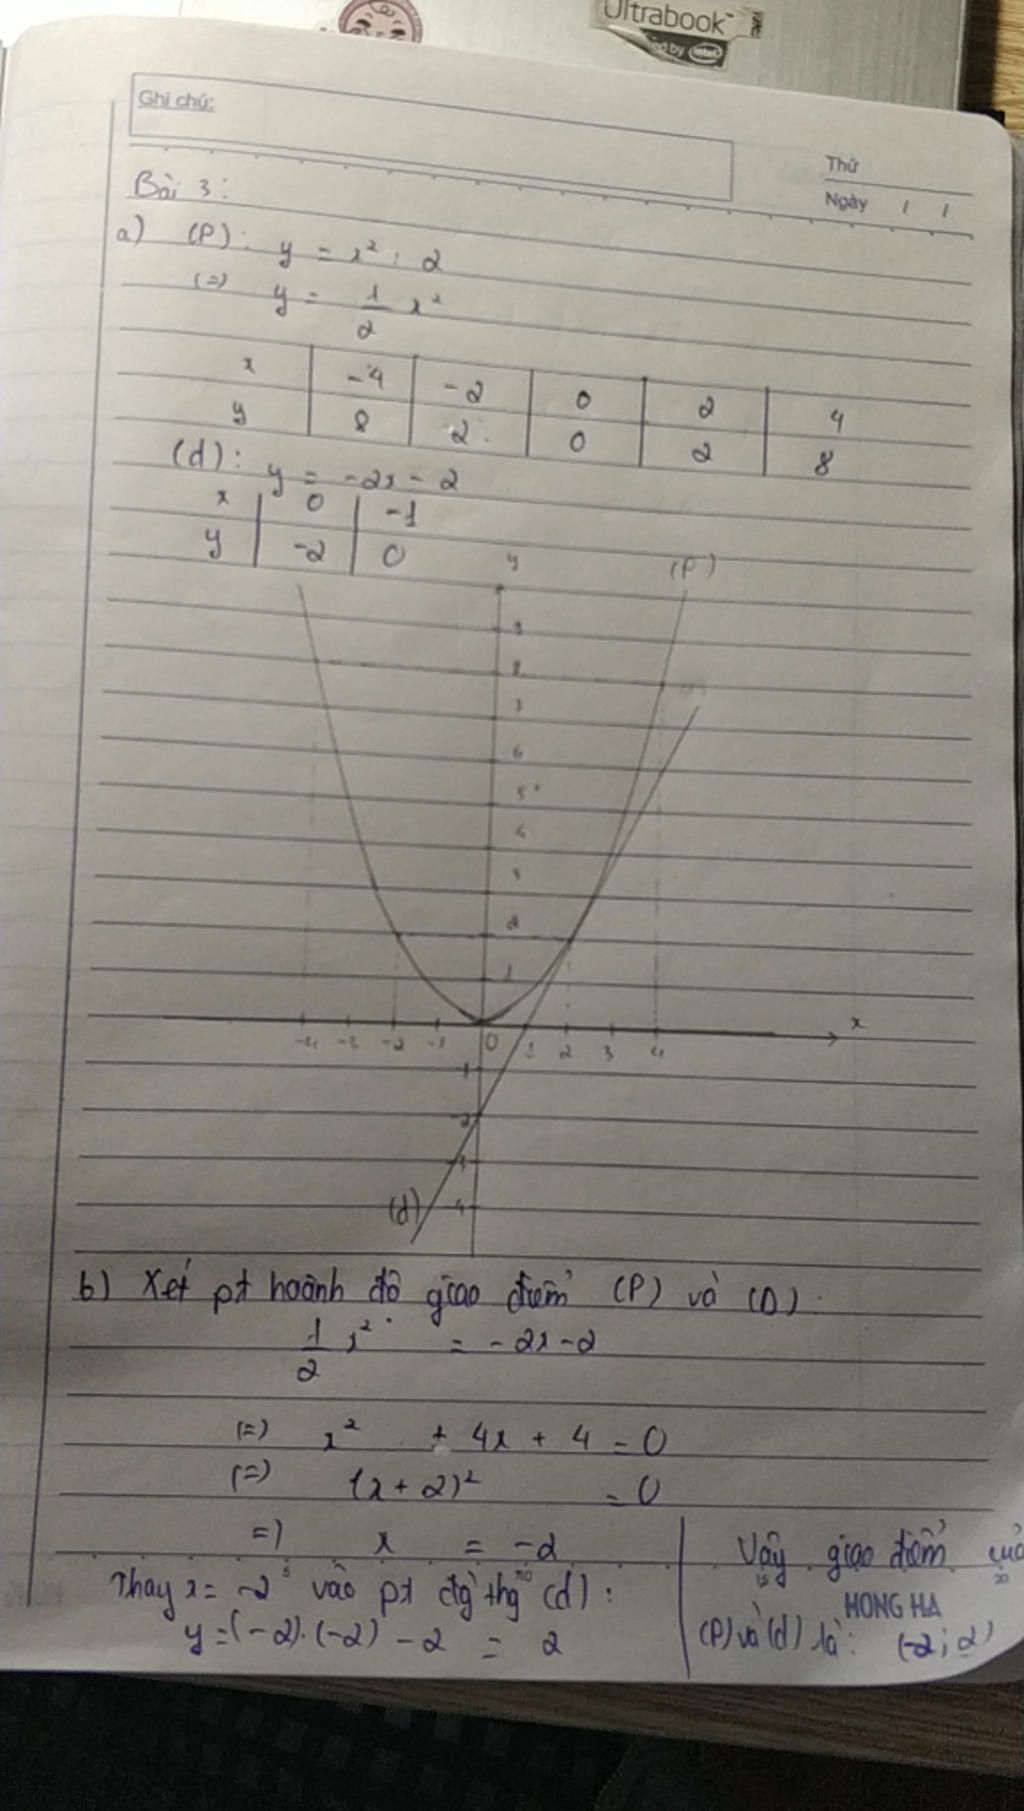 Ultrabook
ed by intel
Ghi chú:
Thứ
Ngày / /
Bài 3:
a) (P): y = x² : 2
(=) y = 1/2 x²
x | -4 | -2 | 0 | 2 | 4
y | 8 | 2 | 0 | 2 | 8
(d): y = -2x - 2
x | 0 | -1
y | -2 | 0
y (P)
9
8
7
6
5
4
3
2
1
x
-4 -3 -2 -1 0 1 2 3 4
-1
-2
-3
-4
(d)
b) Xét pt hoành độ giao điểm (P) và (D).
1/2 x² = -2x-2
(=) x² + 4x + 4 = 0
(=) (x + 2)² = 0
=) x = -2
Thay x = -2 vào pt đg thg (d):
y = (-2).(-2) - 2 = 2
Vậy giao điểm của
HONG HA
(P) và (d) là: (-2; 2)